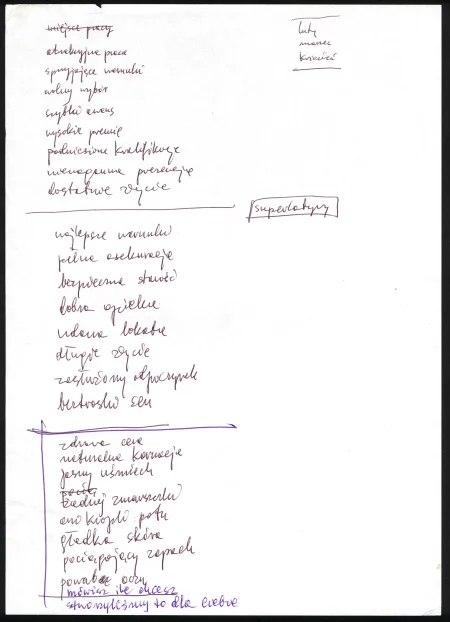 miejsce pracy
atrakcyjna praca
sprzyjające warunki
wolny wybór
szybki awans
wysokie premie
podniesione kwalifikacje
nienaganna prezencja
dostatnie życie
luty
marzec
kwiecień
superlatywy
najlepsze warunki
pełna asekuracja
bezpieczna starość
dobra opieka
udana lokata
długie życie
zasłużony odpoczynek
beztroski sen
zdrowa cera
naturalna karnacja
jasny uśmiech
żadnej zmarszczki
ani kropli potu
gładka skóra
pociągający zapach
powabne oczy
mówisz ile chcesz
stworzyliśmy to dla ciebie